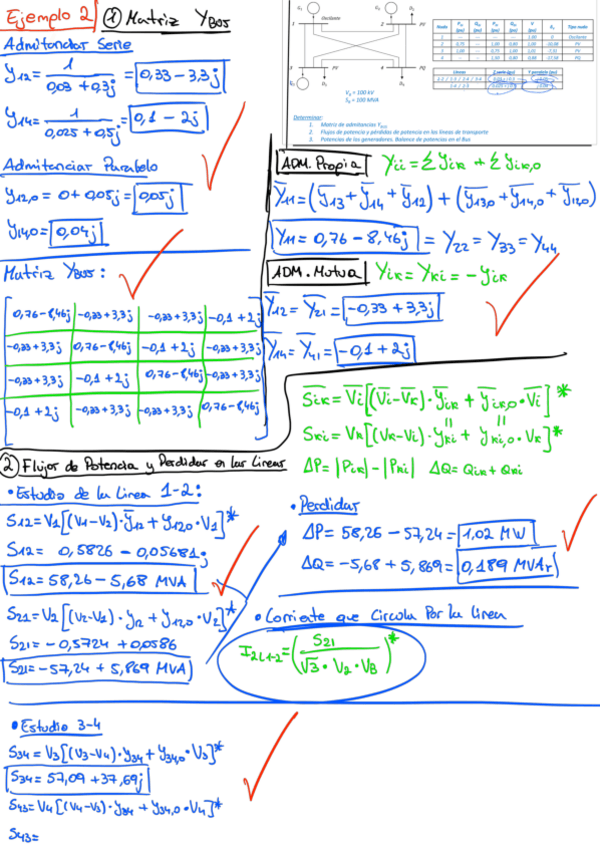 Ejemplo 2
① Matriz YBUS
Admitancias Serie
y12 = 1 / (0,03 + 0,3j) = 0,33 - 3,3j
y14 = 1 / (0,025 + 0,5j) = 0,1 - 2j
Admitancias Paralelo
y12,0 = 0 + 0,05j = 0,05j
y14,0 = 0,04j
Matriz YBUS:
0,76-8,46j -0,33+3,3j -0,33+3,3j -0,1+2j
-0,33+3,3j 0,76-8,46j -0,1+2j -0,33+3,3j
-0,33+3,3j -0,1+2j 0,76-8,46j -0,33+3,3j
-0,1+2j -0,33+3,3j -0,33+3,3j 0,76-8,46j
Oscilante
PV
PQ
Nudo
Tipo nudo
Oscilante
Líneas
Z serie (pu)
Y paralelo (pu)
VB = 100 kV
SB = 100 MVA
Determinar:
1. Matriz de admitancias YBUS
2. Flujos de potencia y pérdidas de potencia en las líneas de transporte
3. Potencias de los generadores. Balance de potencias en el Bus
ADM. Propia Yii = Σ yik + Σ yik,0
Y11 = (y13 + y14 + y12) + (y13,0 + y14,0 + y12,0)
Y11 = 0,76 - 8,46j = Y22 = Y33 = Y44
ADM. Mutua Yik = Yki = -yik
Y12 = Y21 = -0,33 + 3,3j
Y14 = Y41 = -0,1 + 2j
Sik = Vi[(Vi-Vk)·yik + yik,0·Vi]*
Ski = Vk[(Vk-Vi)·yki + yki,0·Vk]*
ΔP = |Pik| - |Pki| ΔQ = Qik + Qki
② Flujos de Potencia y Perdidas en las Lineas
• Estudio de la Linea 1-2:
S12 = V1[(V1-V2)·y12 + y12,0·V1]*
S12 = 0,5826 - 0,05681j
S12 = 58,26 - 5,68 MVA
S21 = V2[(V2-V1)·y12 + y12,0·V2]*
S21 = -0,5724 + 0,0586
S21 = -57,24 + 5,869 MVA
• Perdidas
ΔP = 58,26 - 57,24 = 1,02 MW
ΔQ = -5,68 + 5,869 = 0,189 MVAr
• Corriente que Circula Por la Linea
I2L1-2 = (S21 / (√3 · V2 · VB))*
• Estudio 3-4
S34 = V3[(V3-V4)·y34 + y34,0·V3]*
S34 = 57,09 + 37,69j
S43 = V4[(V4-V3)·y34 + y34,0·V4]*
S43 =